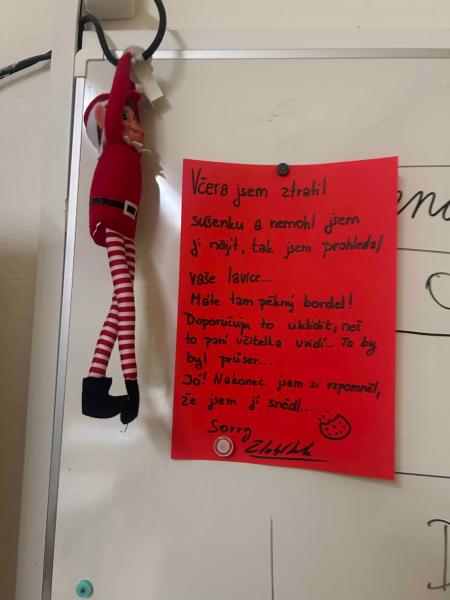 Včera jsem ztratil
sušenku a nemohl jsem
ji najít, tak jsem prohledal
vaše lavice...
Máte tam pěkný bordel!
Doporučuju to uklidit, než
to paní učitelka uvidí... To by
byl průser...
Jó! Nakonec jsem si vzpomněl,
že jsem jí snědl...
Sorry